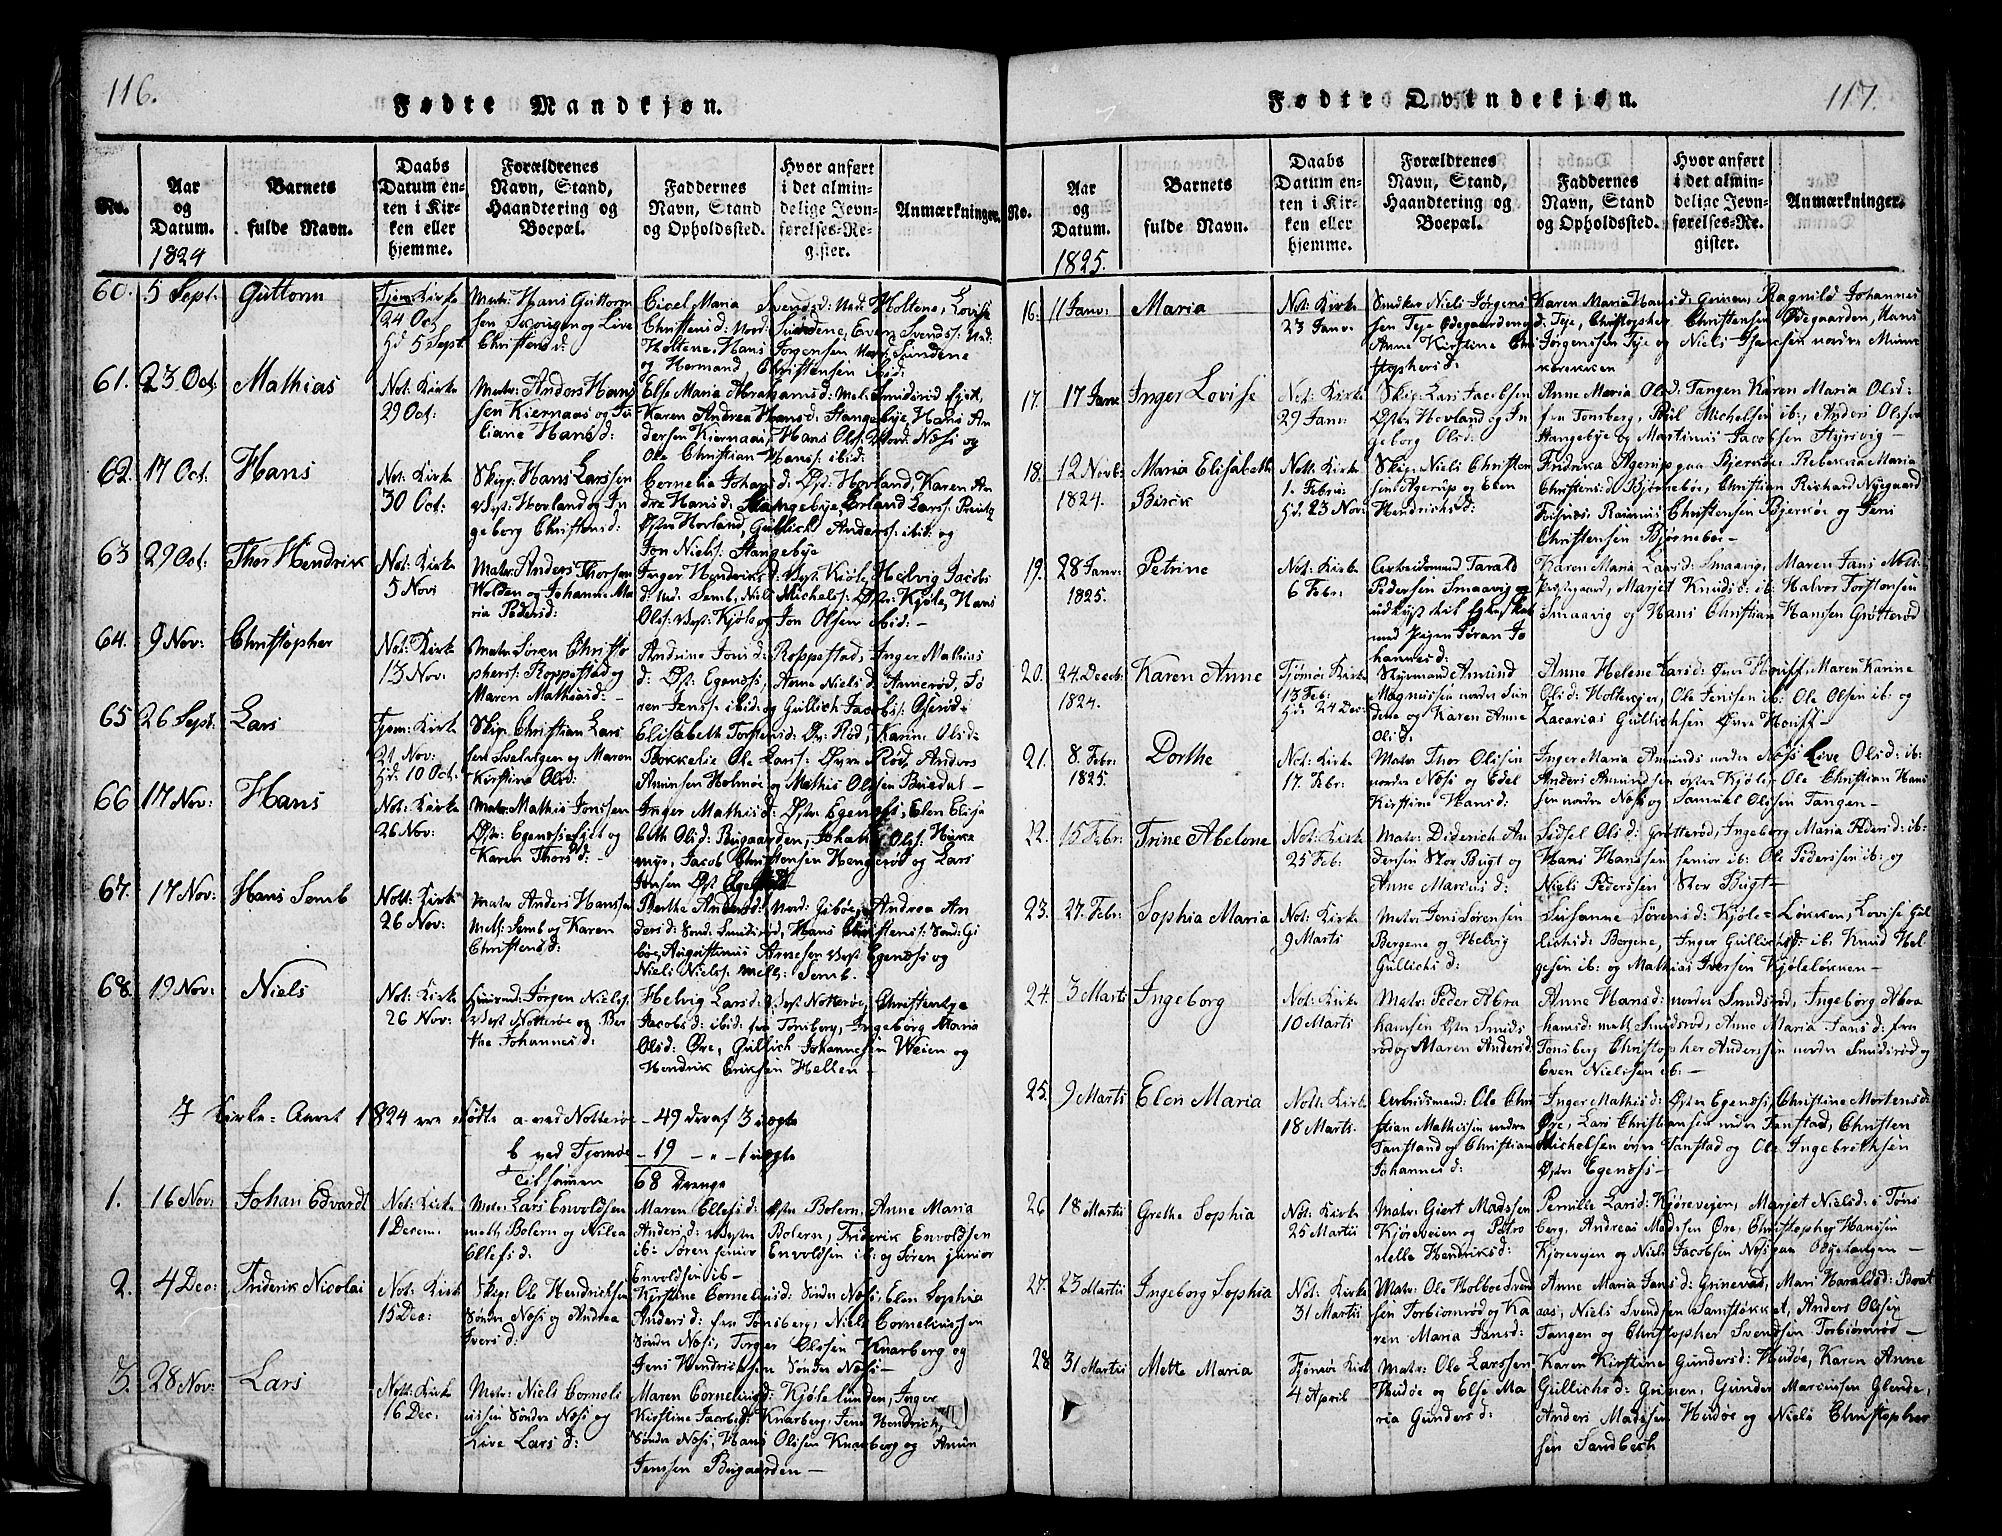 116.
Fødte Mandkjøn.
No.
Aar og Datum.
1824
Barnets fulde Navn.
Daabs Datum enten i Kirken eller hjemme.
Forældrenes Navn, Stand, Haandtering og Boepæl.
Faddernes Navn, Stand og Opholdssted.
Hvor anført i det almindelige Jevnførelses-Register.
Anmærkninger.
60. 5 Sept. Guttorm
Kirke
24 Oct.
5 Sept.
Matr: Hans Guttorm
sen Skougen og Live
Christensd:
Cicel Maria Svendsd: Holtene, Lovise
Christensd: Nord: Sundene, Even Svends:
Holtene, Hans Jørgensen Nor: Sundene
og Hermand Christensen ibid:
61. 23 Oct. Mathias
Not: Kirke
29 Oct:
Matr: Anders Hans
sen Kiernaas og Ju
liane Hansd:
Else Maria Abrahamsd: Mel: Smidsrød
Karen Andrea Hansd: Stangebye, Hans An
dersen Kiernaas, Hans Ols: Nord: Næss og
Ole Christian Hans: ibid:
62. 17 Oct. Hans
Not: Kirke
30 Oct:
Skipp: Hans Larssen
Vest: Hovland og In
geborg Christensd:
Cornelia Johansd: Øst: Hovland, Karen An
dre Hansd: Stangebye Erland Lars:
Østre Hovland, Gullich Anders: ibid: og
Jon Niels: Stangebye
63 29 Oct: Thor Hendrik
Not: Kirke
5 Nov:
Matr: Anders Thorsen
Wolden og Johanne Ma
ria Pedersd:
Inger Hendriksd: Vest: Kjøle, Helvig Jacobs
d: Ned. Semb, Niels Michels: Øst: Kjøle, Hans
Ols: Vest: Kjøle og Jon Olsen ibid: –
64. 9 Nov: Christopher
Not: Kirke
13 Nov:
Matr: Søren Christo
phers: Roppestad og
Maren Mathisd: –
Andrine Jonsd: Roppestad, Inger Mathias
d: Øst: Egenæss, Anne Nielsd: Annerød, Sø
ren Jens: ibid: og Gullich Jacobs: Oserød:
65 26 Sept: Lars
Tjøm: Kirke
21 Nov:
10 Oct:
Skip: Christian Lars
sen Svelvigen og Maren
Kirstine Olsd:
Elisabeth Torstensd: Øv: Rød, Karine Olsd:
Tokkelie Ole Lars: Øvre Rød, Anders
Aminsen Holmøe og Mathis Olsen Buedal –
66 17 Nov: Hans
Not: Kirke
26 Nov:
Matr: Mathis Jonssen
Øst: Egenæss og
Karen Thorsd: –
Inger Mathisd: Østr Egenæss, Elen Elisa
beth Olsd: Bugaarden, Ols:
myr, Jacob Christensen Hengerød og Lars
Jonsen Øst Egenæss
67. 17 Nov: Hans Semb
Nott: Kirke
26 Nov:
Matr Anders Hanssen
mell: Semb og Karen
Christensd:
Berthe Andersd: Nord: Gibøe, Andrea An
dersd: Sond: Smidsrød, Hans Christens: Sond: Gi
bøe, Augustinus Arnesen Vest Egenæss og
Niels Niels: mell: Semb. –
68. 19 Nov: Niels
Not: Kirke
26 Nov:
Jørgen Niels:
Vest Notterøe og Ber
the Johannesd:
Helvig Larsd: Vest Notterøe, Christentze
Jacobsd: ibid: fra Tønsberg, Ingeborg Maria
Olsd: Øre, Gullich Johannesen Weien og
Hendrik Eriksen Hellen –
I Kirke-Aaret 1824 ere fødte a. ved Notterøe – 49 deraf 3 uægte
b ved Tjømøe – 19 – " – 1 uægte
Tilsammen 68 Drenge
1. 16 Nov: Johan Edvardt
Not: Kirke
1 Decem.
Matr: Lars Envoldsen
mell: Bolern og Nilea
Ellefsd:
Maren Ellefsd: Østre Bolern, Anne Maria
Andersd: Vestre Bolern, Friderik Envoldsen
ib: Søren senior Envoldsen ib: og Søren junior
Envoldsen ib –
2. 4 Dec: Friderik Nicolai
Not: Kirke
15 Dec:
Skip: Ole Hendriksen
Søndre Næss og Andrea
Iversd:
Kirstine Cornelius d: Søndr Næss, Elen Sophia
Andersd: fra Tønsberg, Niels Corneliussen
Søndre Næss, Torger Olssen Knarberg og
Jens Hendricksen Søndre Næss –
3. 28 Nov: Lars
Nott: Kirke
16 Dec.
Matr: Niels Corneli
ussen Søndre Næss og
Live Larsd:
Maren Corneliusd: Kjøle Lunden, Inger
Kirstine Jacobsd: Knarberg, Jens Hendrich
Søndre Næss, Hans Olssen Knarberg og Amun
Jenssen Bugaarden –
117.
Fødte Qvindekjøn.
No.
Aar og Datum.
1825.
Barnets fulde Navn.
Daabs Datum enten i Kirken eller hjemme.
Forældrenes Navn, Stand, Haandtering og Boepæl.
Faddernes Navn, Stand og Opholdssted.
Hvor anført i det almindelige Jevnførelses-Register.
Anmærkninger.
16. 11 Janv: Maria
Not: Kirke
23 Janv:
Snidker Niels Jørgens
sen Teje Ødegaarden og
Anne Kirstine Chri
stophersd:
Karen Maria Hansd: Grinen, Ragnild Johannes
d: Teje, Christopher Christensen Ødegaarden, Hans
Jørgenssen Teje og Niels Isachsen nordre Munke
rekken
17. 17 Janv Inger Lovise
Not: Kirke
29 Janv:
Skip: Lars Jacobsen
Østre Hovland og In
geborg Olsd:
Anne Maria Olsd: Tangen Karen Maria Olsd:
fra Tønsberg, Poul Michelsen ib: Anders Olssen
Stangebye og Martinus Jacobsen Styrsvig –
18. 12 Novb: 1824. Maria Elisabeth Birck
Nott: Kirke
1. Febru:
23 Nov:
Skip: Niels Christen
sen Agerup og Elen
Hendrichsd:
Fredrikka Agerup paa Bjerkøe, Rebekka Maria
Christensd: Bjørnebøe, Christian Richard Nygaard
Rasmus Christensen Bjerkøe og Jens
Christensen Bjørnebøe –
19. 28 Janv: 1825. Petrine
Not: Kirke
6 Febr:
Arbeidsmand Tarald
Pedersen Smaavig og
udlyst til Egteskab
med Pigen Jøran Jo
hannesd:
Karen Maria Larsd: Smaavig, Maren Jans
Marjet Knudsd: ib: Halvor Torstensen
Smaavig og Hans Christian Hansen Grøtterød
20. 24. Decb: 1824. Karen Anne
Tjømøe Kirke
13 Feb:
24 Dec:
Styrmand Amund
Magnussen nordre Sun
dene og Karen Anne
Olsd.
Anne Helene Larsd: Øvre Houff, Maren Karine
Olsd: Holtekjær, Ole Jenssen ib: Ole Olsen ib: og
Zacarias Gullichsen Øvre Houff –
21. 8. Febr: 1825. Dorthe
Not: Kirke
17. Febr:
Matr Thor Olssen
nordre Næss og Edel
Kirstine Hansd:
Inger Maria Amundsd nordre Næss, Live Olsd: ib:
Anders Amundsen østre Kjøle, Ole Christian Hans
sen nordre Næss og Samuel Olssen Tangen –
22. 15 Febr: Trine Abelone
Not: Kirke
25 Feb:
Matr: Diderich An
dersen Stor Bugt og
Anne Mariusd:
Sidsel Olsd: Grøtterød, Ingeborg Maria Pedersd: ib:
Hans Hanssen senior ib: Ole Pederssen ib: og
Niels Pederssen Stor Bugt –
23. 27. Febr: Sophia Maria
Not: Kirke
9 Marti
Matr: Jens Sørensen
Bergene og Helvig
Gullichsd:
Susanne Sørensd: Kjøle-Løkken, Lovise Gul
lichsd: Bergene, Inger Gullichsd: ib: Knud Hel
gesen ib: og Mathias Iversen Kjøleløkken –
24. 3 Marti Ingeborg
Not: Kirke
10 Marti
Matr: Peder Abra
hamsen Østre Smids
rød og Maren Andersd:
Anne Hansd: nordre Smidsrød, Ingeborg Abra
hamsd: mell Smidsrød, Anne Maria Jansd: fra
Tønsberg Christopher Anderssen nordre Smidsrød og
Even Nielssen ib: –
25. 9 Marti Elen Maria
Nott: Kirke
18 Marti.
Arbeidsmand: Ole Chri
stian Mathissen nedre
Tanstad og Christiane
Johannesd:
Inger Mathisd: Østre Egenæss, Christine Mortensd:
Øre, Lars Christiansen nedre Tanstad, Christen
Michelsen øvre Tanstad og Ole Ingebrethsen
Østre Egenæss –
26. 18 Marti Grethe Sophia
Not: Kirke
25 Martii
Matr: Giert Madssen
Kjøreveien og Petro
nelle Hendriksd:
Pernilie Larsd: Kjørevejen, Marjet Nielsd: i Tøns
berg, Andreas Madssen Øre, Christopher Hanssen
Kjørevejen og Niels Jacobsen Næss paa Odgetangen –
27. 23 Martii Ingeborg Sophia
Not: Kirke
31 Martii
Matr: Ole Holboe Svend
sen Torbiornrød og Ka
ren Maria Jansd:
Anne Maria Jansd: Grinevad, Mari Haraldsd: Brat
aas, Niels Svendsen Samstøkket, Anders Olssen
Tangen og Christopher Svendsen Torbiornrød –
28. 31 Martii Mette Maria
Tjømøe Kirke
4 April
Matr: Ole Larssen
Hudøe og Else Ma
ria Gundersd:
Karen Kirstine Gundersd: Hudøe, Karen Anne
Gullichsd: Grimen, Gunder Marcussen Glende,
Anders Madssen Hudøe og Niels Christopher
sen Sandbech